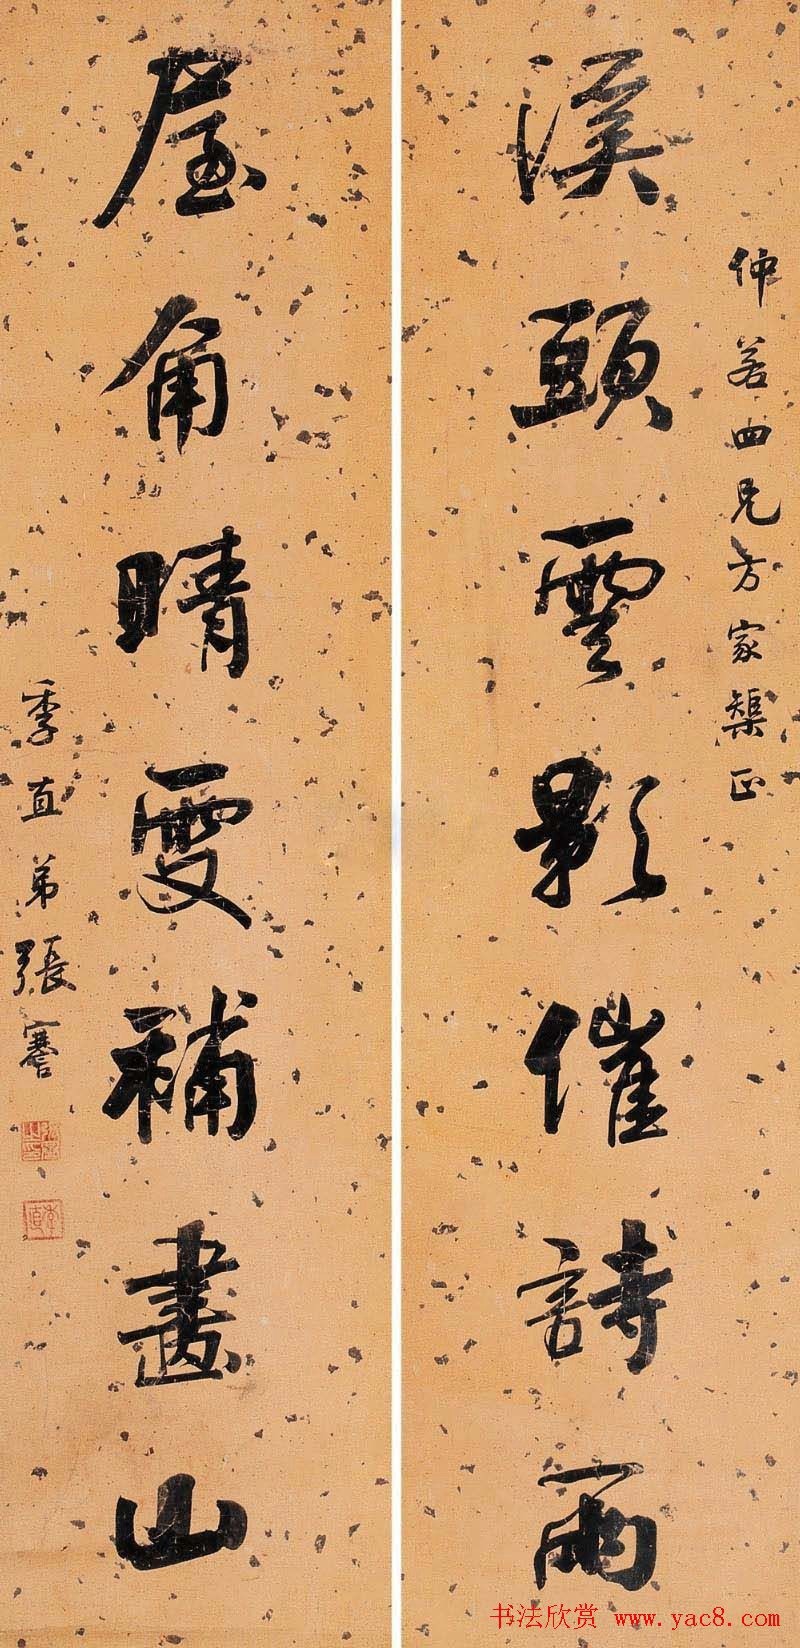 仲若四兄方家榘正
溪頭雲影催詩雨
屋角晴雯補畫山
季直弟張謇
季直
书法欣赏 www.yac8.com